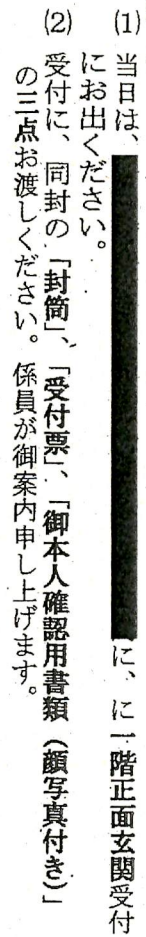 (1) 当日は、に、に一階正面玄関受付
にお出ください。
(2) 受付に、同封の「封筒」、「受付票」、「御本人確認用書類（顔写真付き）」
の三点お渡しください。係員が御案内申し上げます。